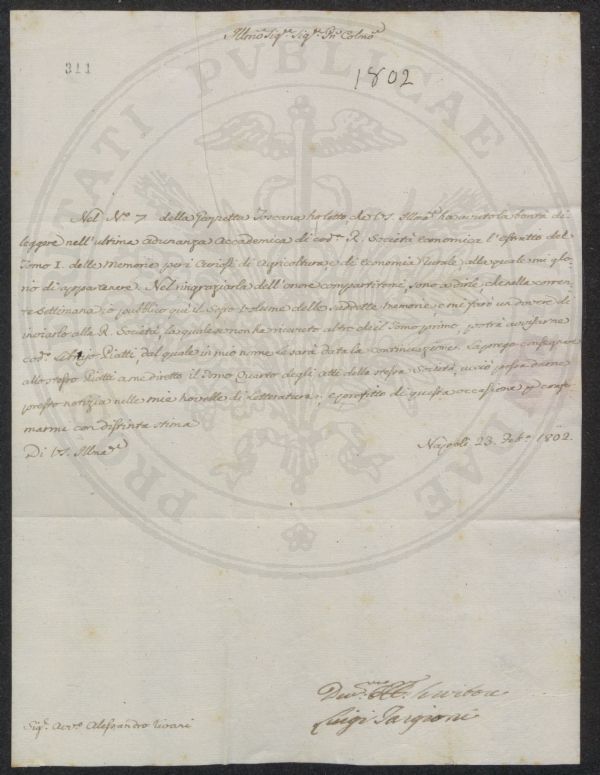 Illmo Sigr. Sigr. Pne Colmo
311
1802
Nel No. 7 della Gazzetta Toscana ho letto che V.S. Illma ha avuto la bontà di
leggere nell'ultima adunanza Accademica di codta R. Società economica l'estratto del
Tomo I. delle Memorie per i Curiosi di Agricoltura, e di Economia Rurale, alla quale mi glo-
rio di appartenere. Nel ringraziarla dell'onore compartitomi, sono a dirle, che nella corren-
te settimana io pubblico qui il Sesto volume delle suddette memorie, e mi farò un dovere di
inviarlo alla R. Società, la quale se non ha ricevuto altro che il Tomo primo, potrà avvisarne
codo Librajo Piatti, dal quale in mio nome le sarà data la continuazione. La prego consegnare
allo stesso Piatti a me diretto il Tomo Quarto degli atti della stessa Società, acciò possa darne
presto notizia nelle mie Novelle di Letteratura; e profitto di questa occasione per confer-
marmi con distinta stima
Di V.S. Illma
Napoli 23. Febo. 1802.
Devmo Servitore
Luigi Targioni
Sigr. Avvo Alessandro Rivani
PRO VTILITATI PVBLICAE